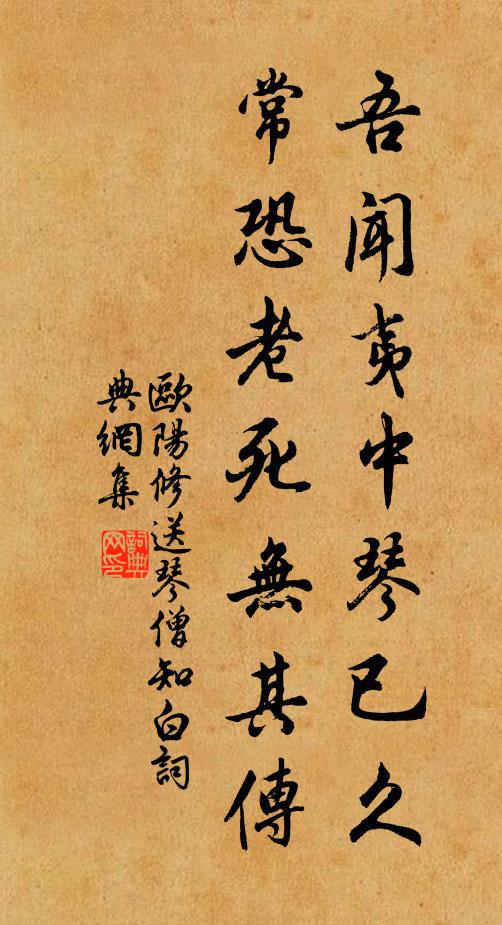 吾聞夷中琴已久
常恐老死無其傳
歐陽修送琴僧知白詞
典網集
詞典網印